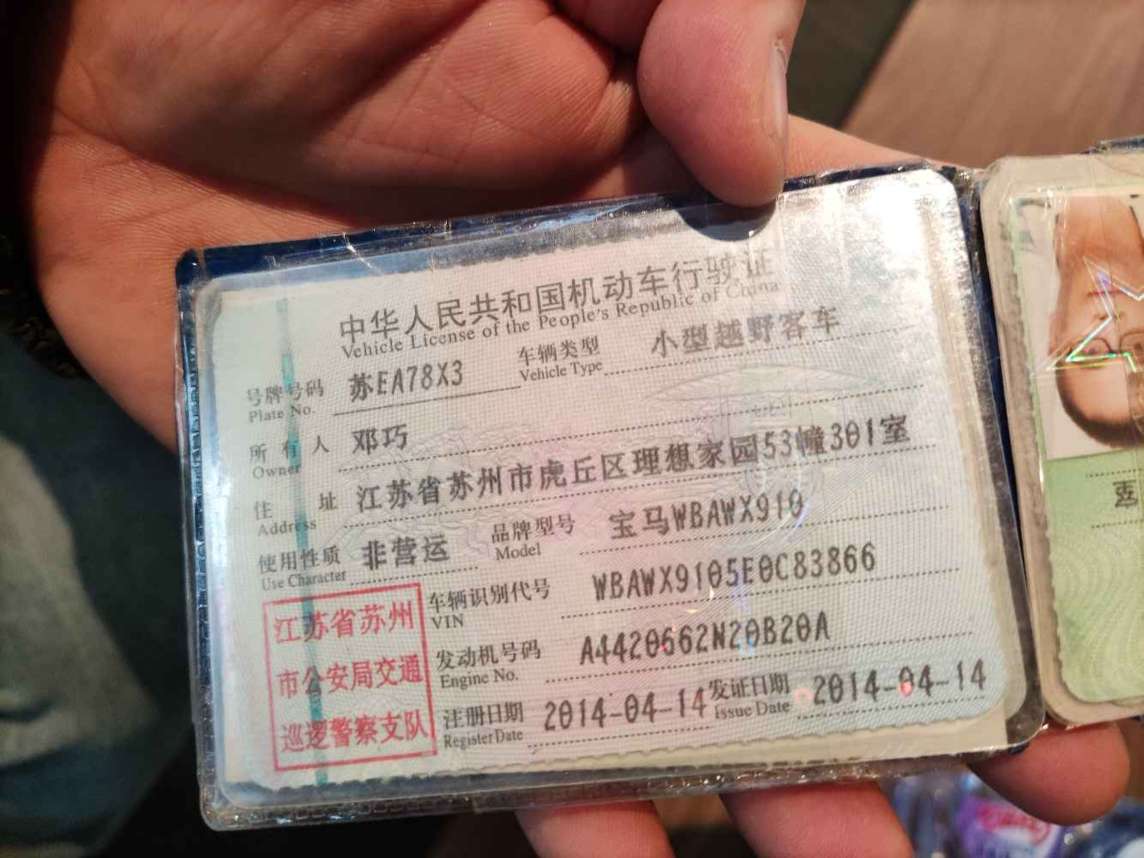 中华人民共和国机动车行驶证
Vehicle License of the People's Republic of China
号牌号码 苏EA78X3 车辆类型 小型越野客车
Plate No. Vehicle Type
所有人 邓巧
Owner
住址 江苏省苏州市虎丘区理想家园53幢301室
Address
使用性质 非营运 品牌型号 宝马WBAWX910
Use Character Model
车辆识别代号 WBAWX9105E0C83866
VIN
发动机号码 A4420662N20B20A
Engine No.
注册日期 2014-04-14 发证日期 2014-04-14
Register Date Issue Date
江苏省苏州
市公安局交通
巡逻警察支队